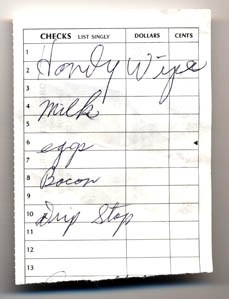 CHECKS LIST SINGLY DOLLARS CENTS
1
2 Handy Wipe
3
4 Milk
5
6 eggs
7
8 Bacon
9
10 Drip Stop
11
12
13